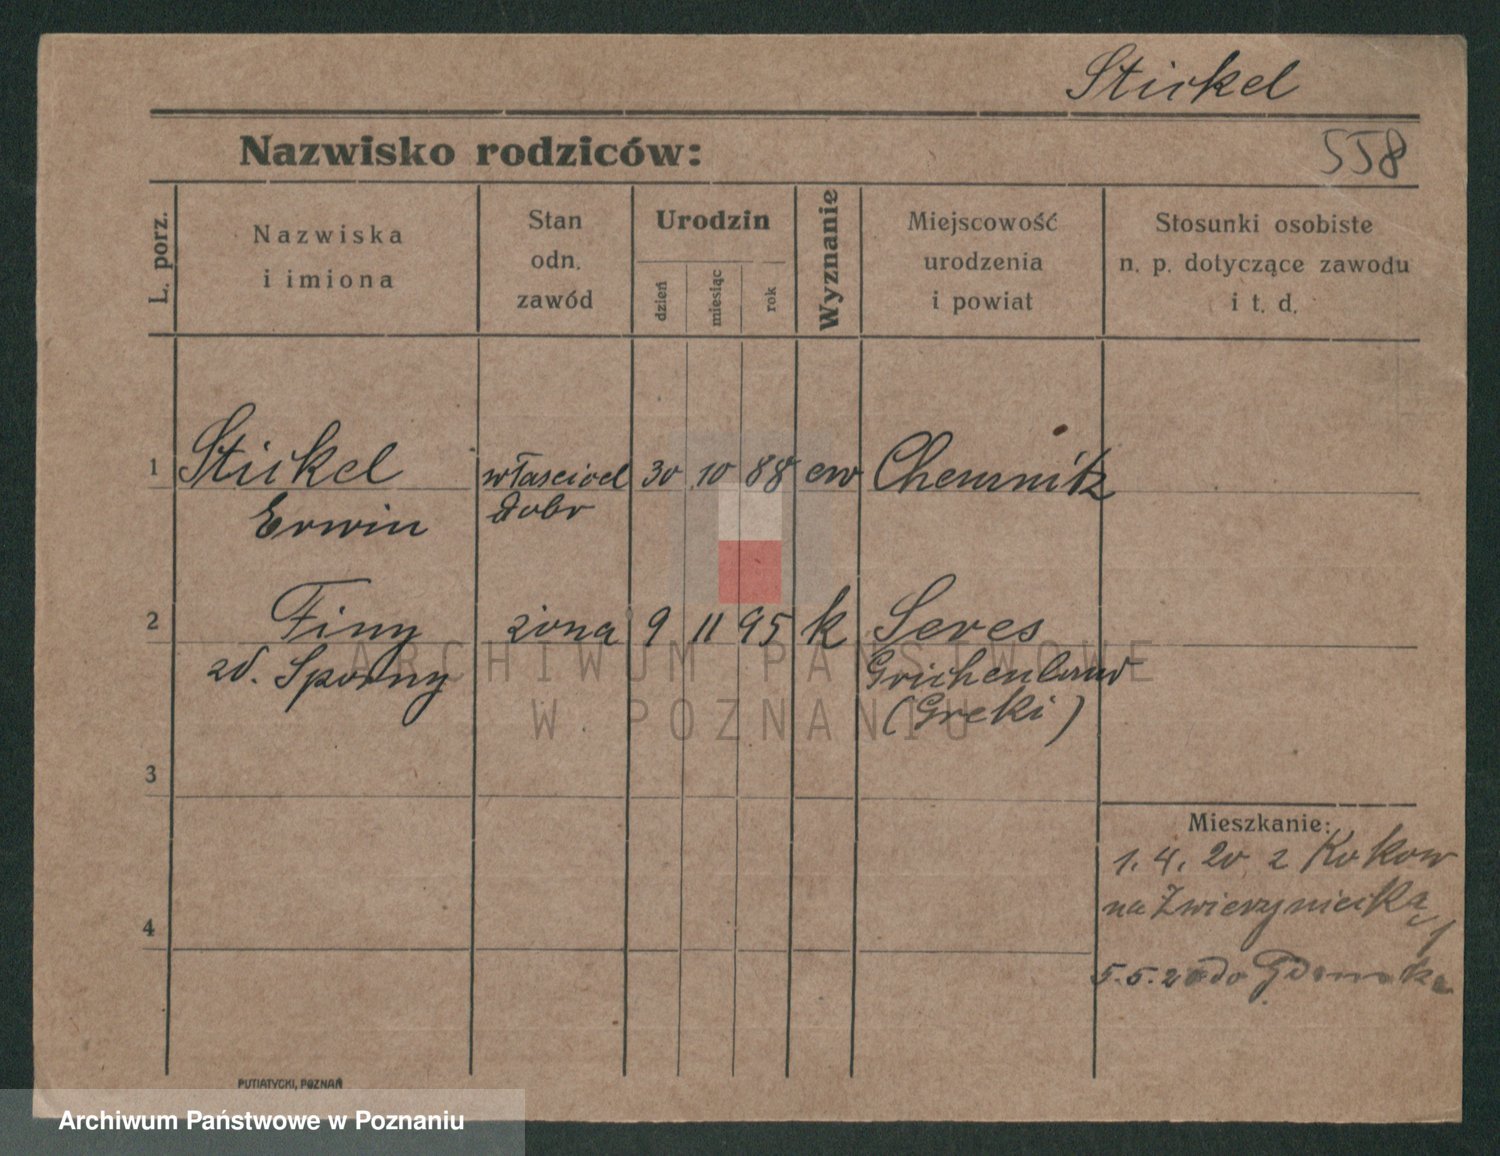 Stickel
Nazwisko rodziców:
558
L. porz.
Nazwiska
i imiona
Stan
odn.
zawód
Urodzin
dzień
miesiąc
rok
Wyznanie
Miejscowość
urodzenia
i powiat
Stosunki osobiste
n. p. dotyczące zawodu
i t. d.
1 Stickel właściciel 30 10 88 ew Chemnitz
Erwin dobr
2 Finy żona 9 11 95 k Seres
zd. Sporny Grichenland
(Greki)
3
Mieszkanie:
1. 4. 20 z
na Zwierzyniecką 1
4
5.5.20 do Gdańska
PUTIATYCKI, POZNAŃ
ARCHIWUM PAŃSTWOWE
W POZNANIU
Archiwum Państwowe w Poznaniu